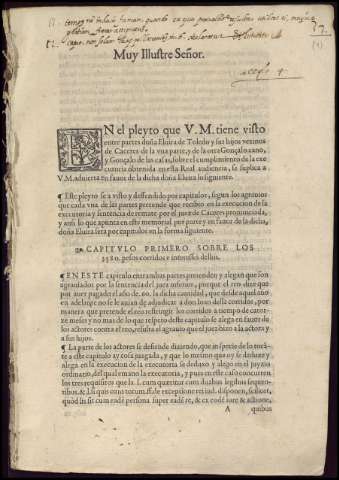 Muy Illustre Señor.
EN el pleyto que V. M. tiene visto
entre partes doña Eluira de Toledo y sus hijos vezinos
de Caceres de la vna parte, y de la otra Gonçalo
y Gonçalo de las casas, sobre el cumplimiento de la exe
cutoria obtenida en esta Real audiencia, se suplica a
V. M. aduierta en fauor de la dicha doña Eluira lo siguiente.
¶ Este pleyto se a visto y deffendido por capitulos, segun los agrauios
que cada vna de las partes pretende que recibio en la execucion de la
executoria y sentencia de remate por el juez de Caceres pronunciada,
y assi lo que apunta en este memorial por parte y en fauor de la dicha
doña Eluira sera por capitulos en la forma siguiente.
CAPITVLO PRIMERO SOBRE LOS
3580. pesos corridos e interesses dellos.
¶ EN ESTE capitulo entrambas partes pretenden y alegan que son
agrauiados por la sentencia del juez inferior, porque el reo dize que
por auer pagado el año de .60. la dicha cantidad, que desde aquel año
en adelante no se le auian de adjudicar a don Ioan de la cantidad, por
manera que pretende el reo restringir los corridos a tiempo de cator-
ze meses y no mas de lo que respeto deste capitulo se alega en fauor de
los actores contra el reo, resulta el agrauio que el juez hizo a la actora y
a sus hijos.
¶ La parte de los actores se defiende diziendo, que respeto de lo toca-
te a este capitulo ay cosa juzgada, y que lo mismo que oy se deduze y
alega en la execucion de la executoria se deduxo y alego en el juyzio
ordinario, del qual emano la executoria, y pues en este caso concurren
los tres requisitos que la l. cum quæritur cum duabus legibus sequen-
tibus, & l. si quis cum totum. ff. de exceptione rei iud. disponen, scilicet,
quòd lis sit cum eadem persona super eadē re, & ex eodē iure & actione,
A quibus